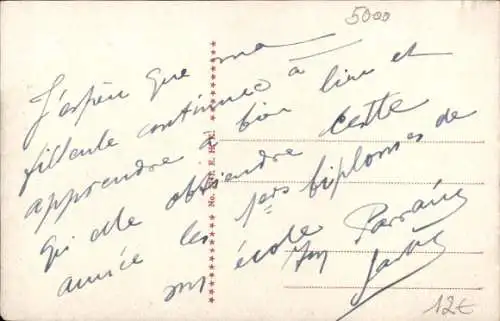 5000
J'espère que ma
filleule continue à lire et
apprendre à bien
qu'elle obtiendra cette
année les 1ers diplomes de
son école
Parrain
12€